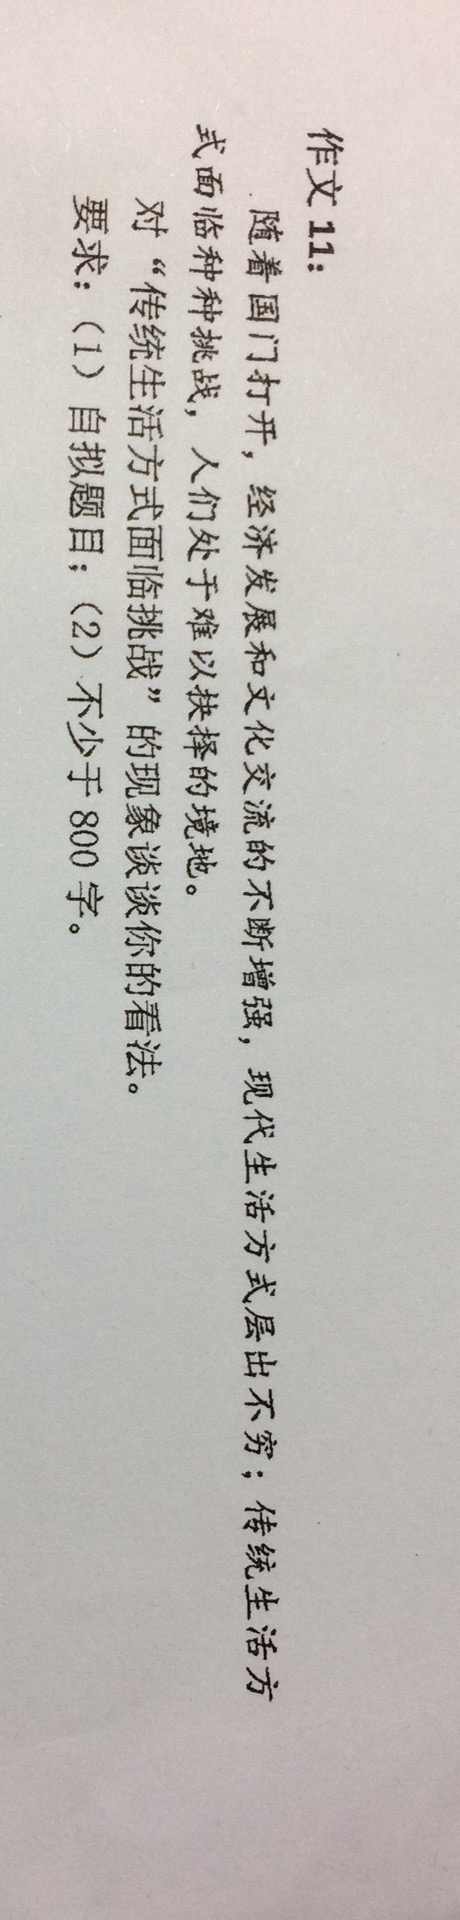 作文 11：
随着国门打开，经济发展和文化交流的不断增强，现代生活方式层出不穷；传统生活方
式面临种种挑战，人们处于难以抉择的境地。
对“传统生活方式面临挑战”的现象谈谈你的看法。
要求：（1）自拟题目；（2）不少于 800 字。